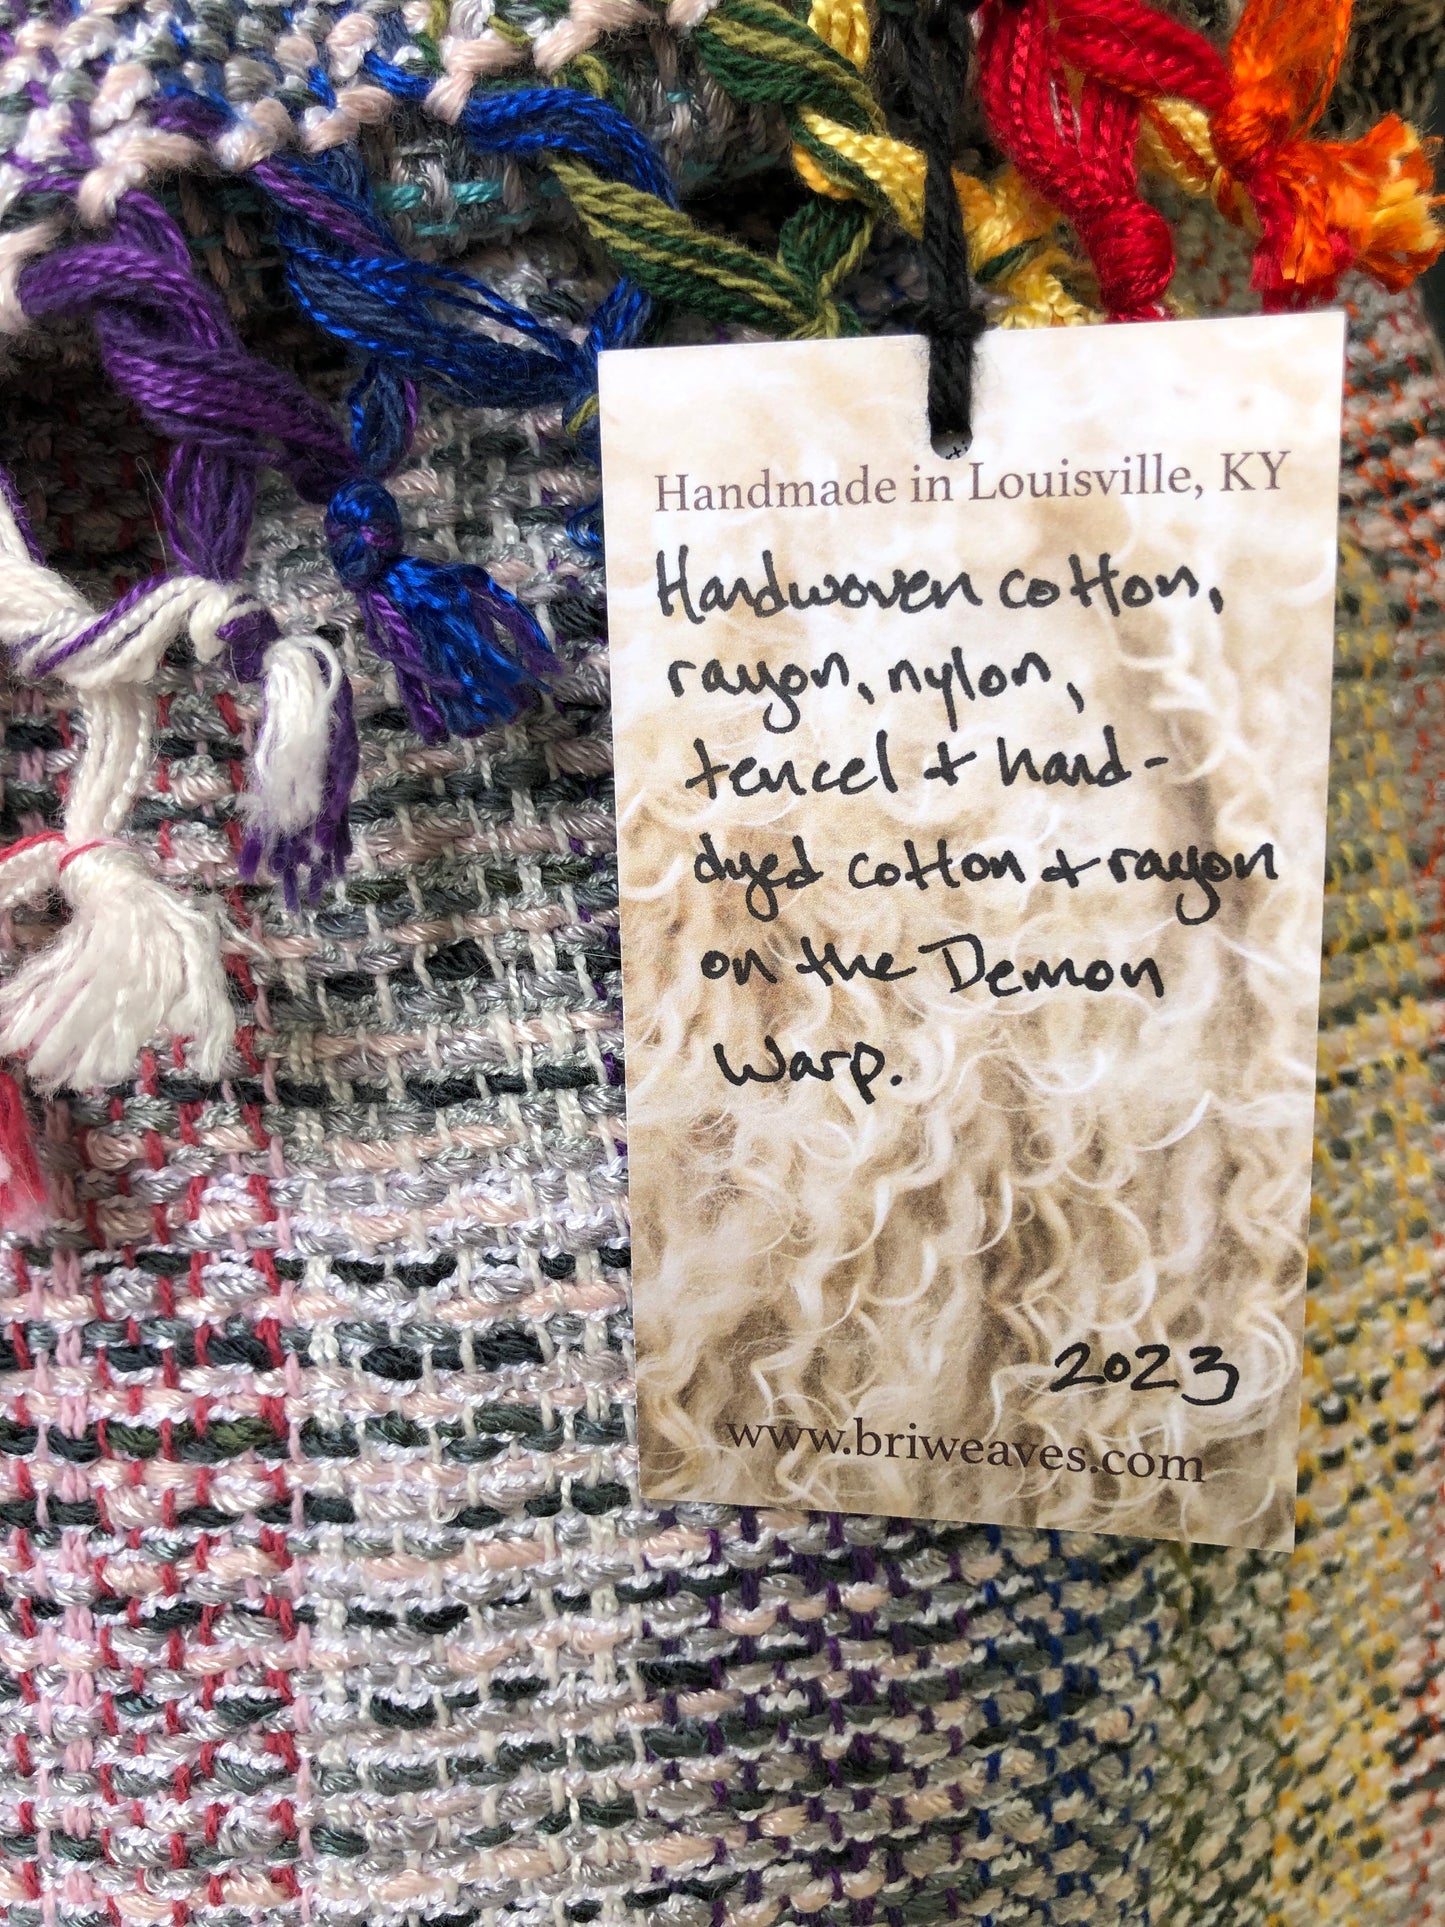 Handmade in Louisville, KY
Handwoven cotton,
rayon, nylon,
tencel + hand-
dyed cotton + rayon
on the Demon
Warp.
2023
www.briweaves.com